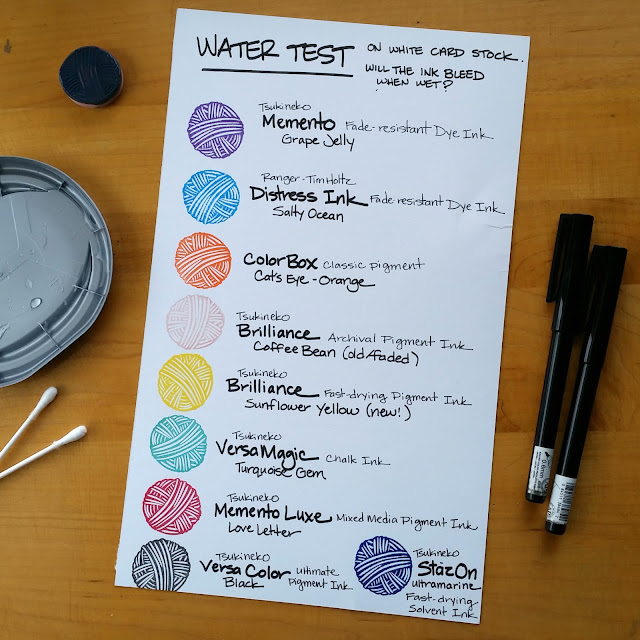 WATER TEST
ON WHITE CARD STOCK.
WILL THE INK BLEED
WHEN WET?
Tsukineko
Memento Fade-resistant Dye Ink
Grape Jelly
Ranger-Tim Holtz
Distress Ink Fade-resistant Dye Ink
Salty Ocean
ColorBox Classic pigment
Cat's Eye - Orange
Tsukineko
Brilliance Archival Pigment Ink
Coffee Bean (old/faded)
Tsukineko
Brilliance Fast-drying Pigment Ink
Sunflower Yellow (new!)
Tsukineko
VersaMagic Chalk Ink
Turquoise Gem
Tsukineko
Memento Luxe Mixed Media Pigment Ink
Love Letter
Tsukineko
Versa Color Ultimate
Black Pigment Ink
Tsukineko
StazOn
ultramarine
Fast-drying
Solvent Ink